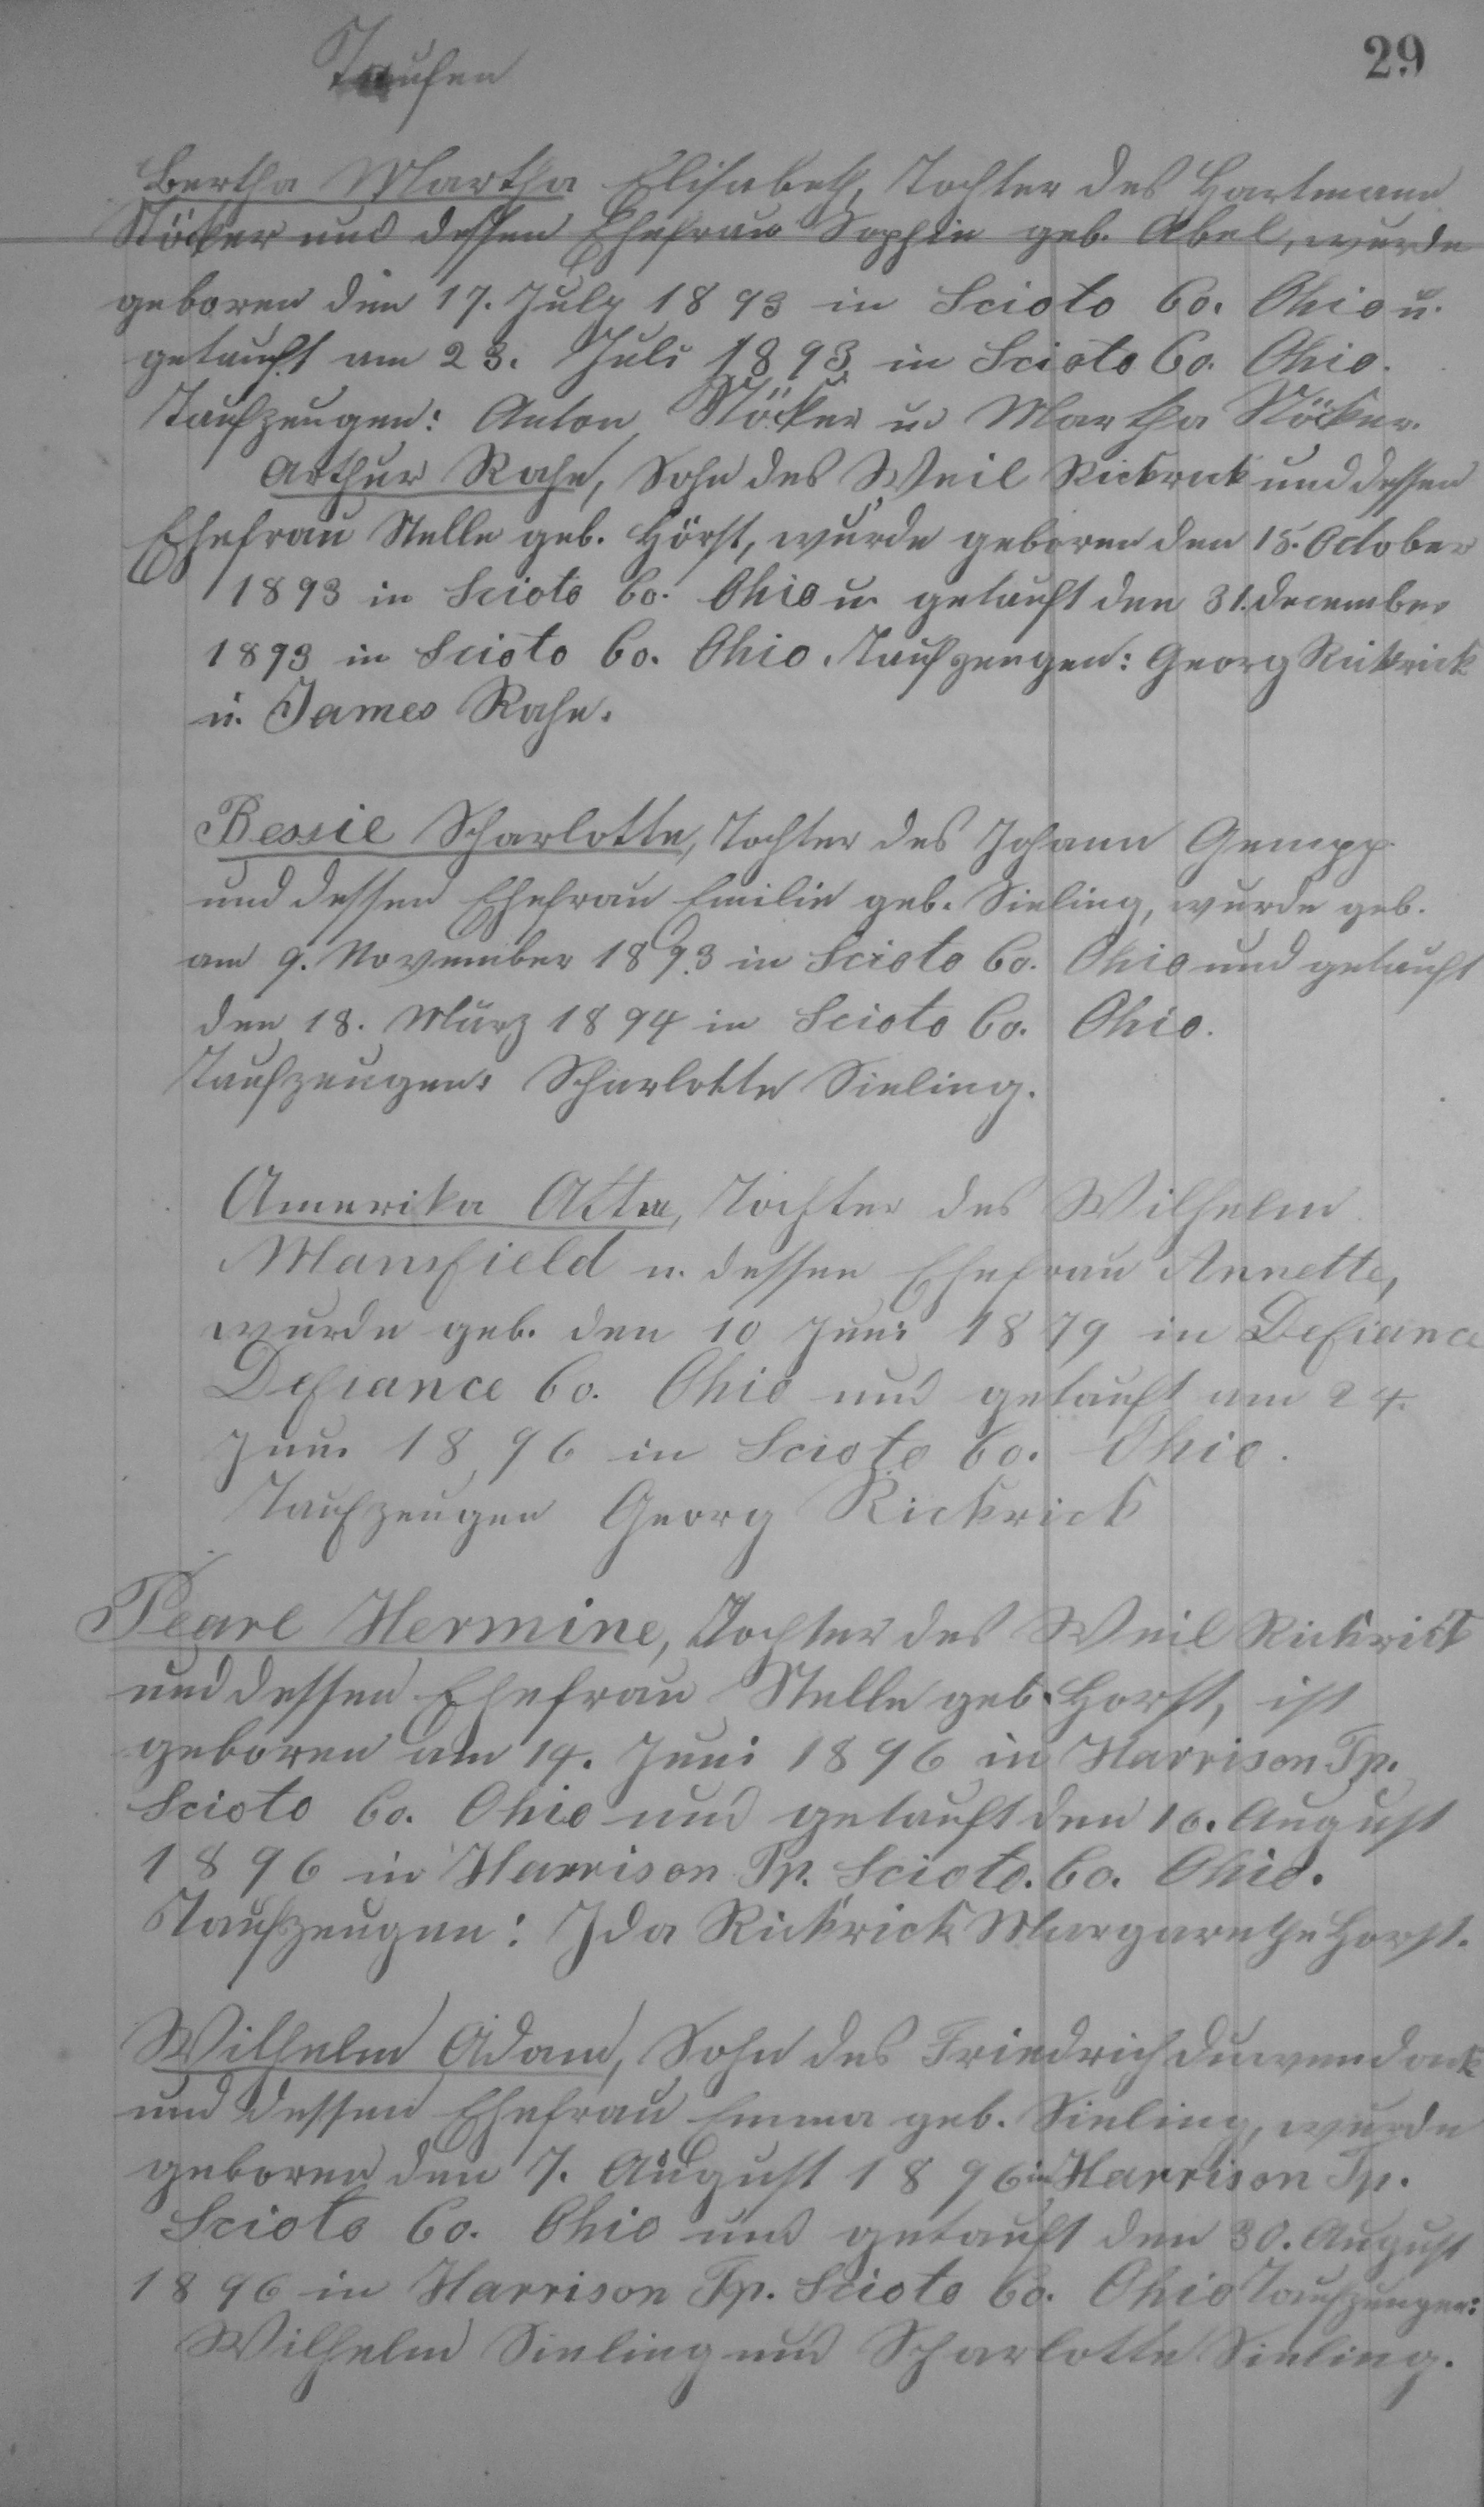 Taufen
29
Bertha Martha Elisabeth, Tochter des Hartmann
Stöcker und dessen Ehefrau Sophie geb. Abel, wurde
geboren den 17. July 1893 in Scioto Co. Ohio u.
getauft am 23. Juli 1893 in Scioto Co. Ohio.
Taufzeugen: Anton Stöcker u Martha Stöcker.
Arthur Rahe, Sohn des Weil Rickrick und dessen
Ehefrau Stelle geb. Hörst, wurde geboren den 15. October
1893 in Scioto Co. Ohio u. getauft den 31. December
1893 in Scioto Co. Ohio. Taufzeugen: Georg Rickrick
u. James Rahe.
Bessie Scharlotte, Tochter des Johann Gempp
und dessen Ehefrau Emilie geb. Sieling, wurde geb.
am 9. November 1893 in Scioto Co. Ohio und getauft
den 18. März 1894 in Scioto Co. Ohio.
Taufzeugen: Scharlotte Sieling.
Amerika Atta, Tochter des Wilhelm
Mansfield u. dessen Ehefrau Annette,
wurde geb. den 10 Juni 1879 in Defiance
Defiance Co. Ohio und getauft am 24.
Juni 1896 in Scioto Co. Ohio.
Taufzeugen Georg Rickrick
Pearl Hermine, Tochter des Weil Rickrick
und dessen Ehefrau Stelle geb. Horst, ist
geboren am 14. Juni 1896 in Harrison Tp.
Scioto Co. Ohio und getauft den 16. August
1896 in Harrison Tp. Scioto. Co. Ohio.
Taufzeugen: Ida Rickrick Margarethe Horst.
Wilhelm Adam, Sohn des Friedrich Duwendack
und dessen Ehefrau Emma geb. Sieling, wurde
geboren den 7. August 1896 in Harrison Tp.
Scioto Co. Ohio und getauft den 30. August
1896 in Harrison Tp. Scioto Co. Ohio Taufzeugen:
Wilhelm Sieling und Scharlotte Sieling.